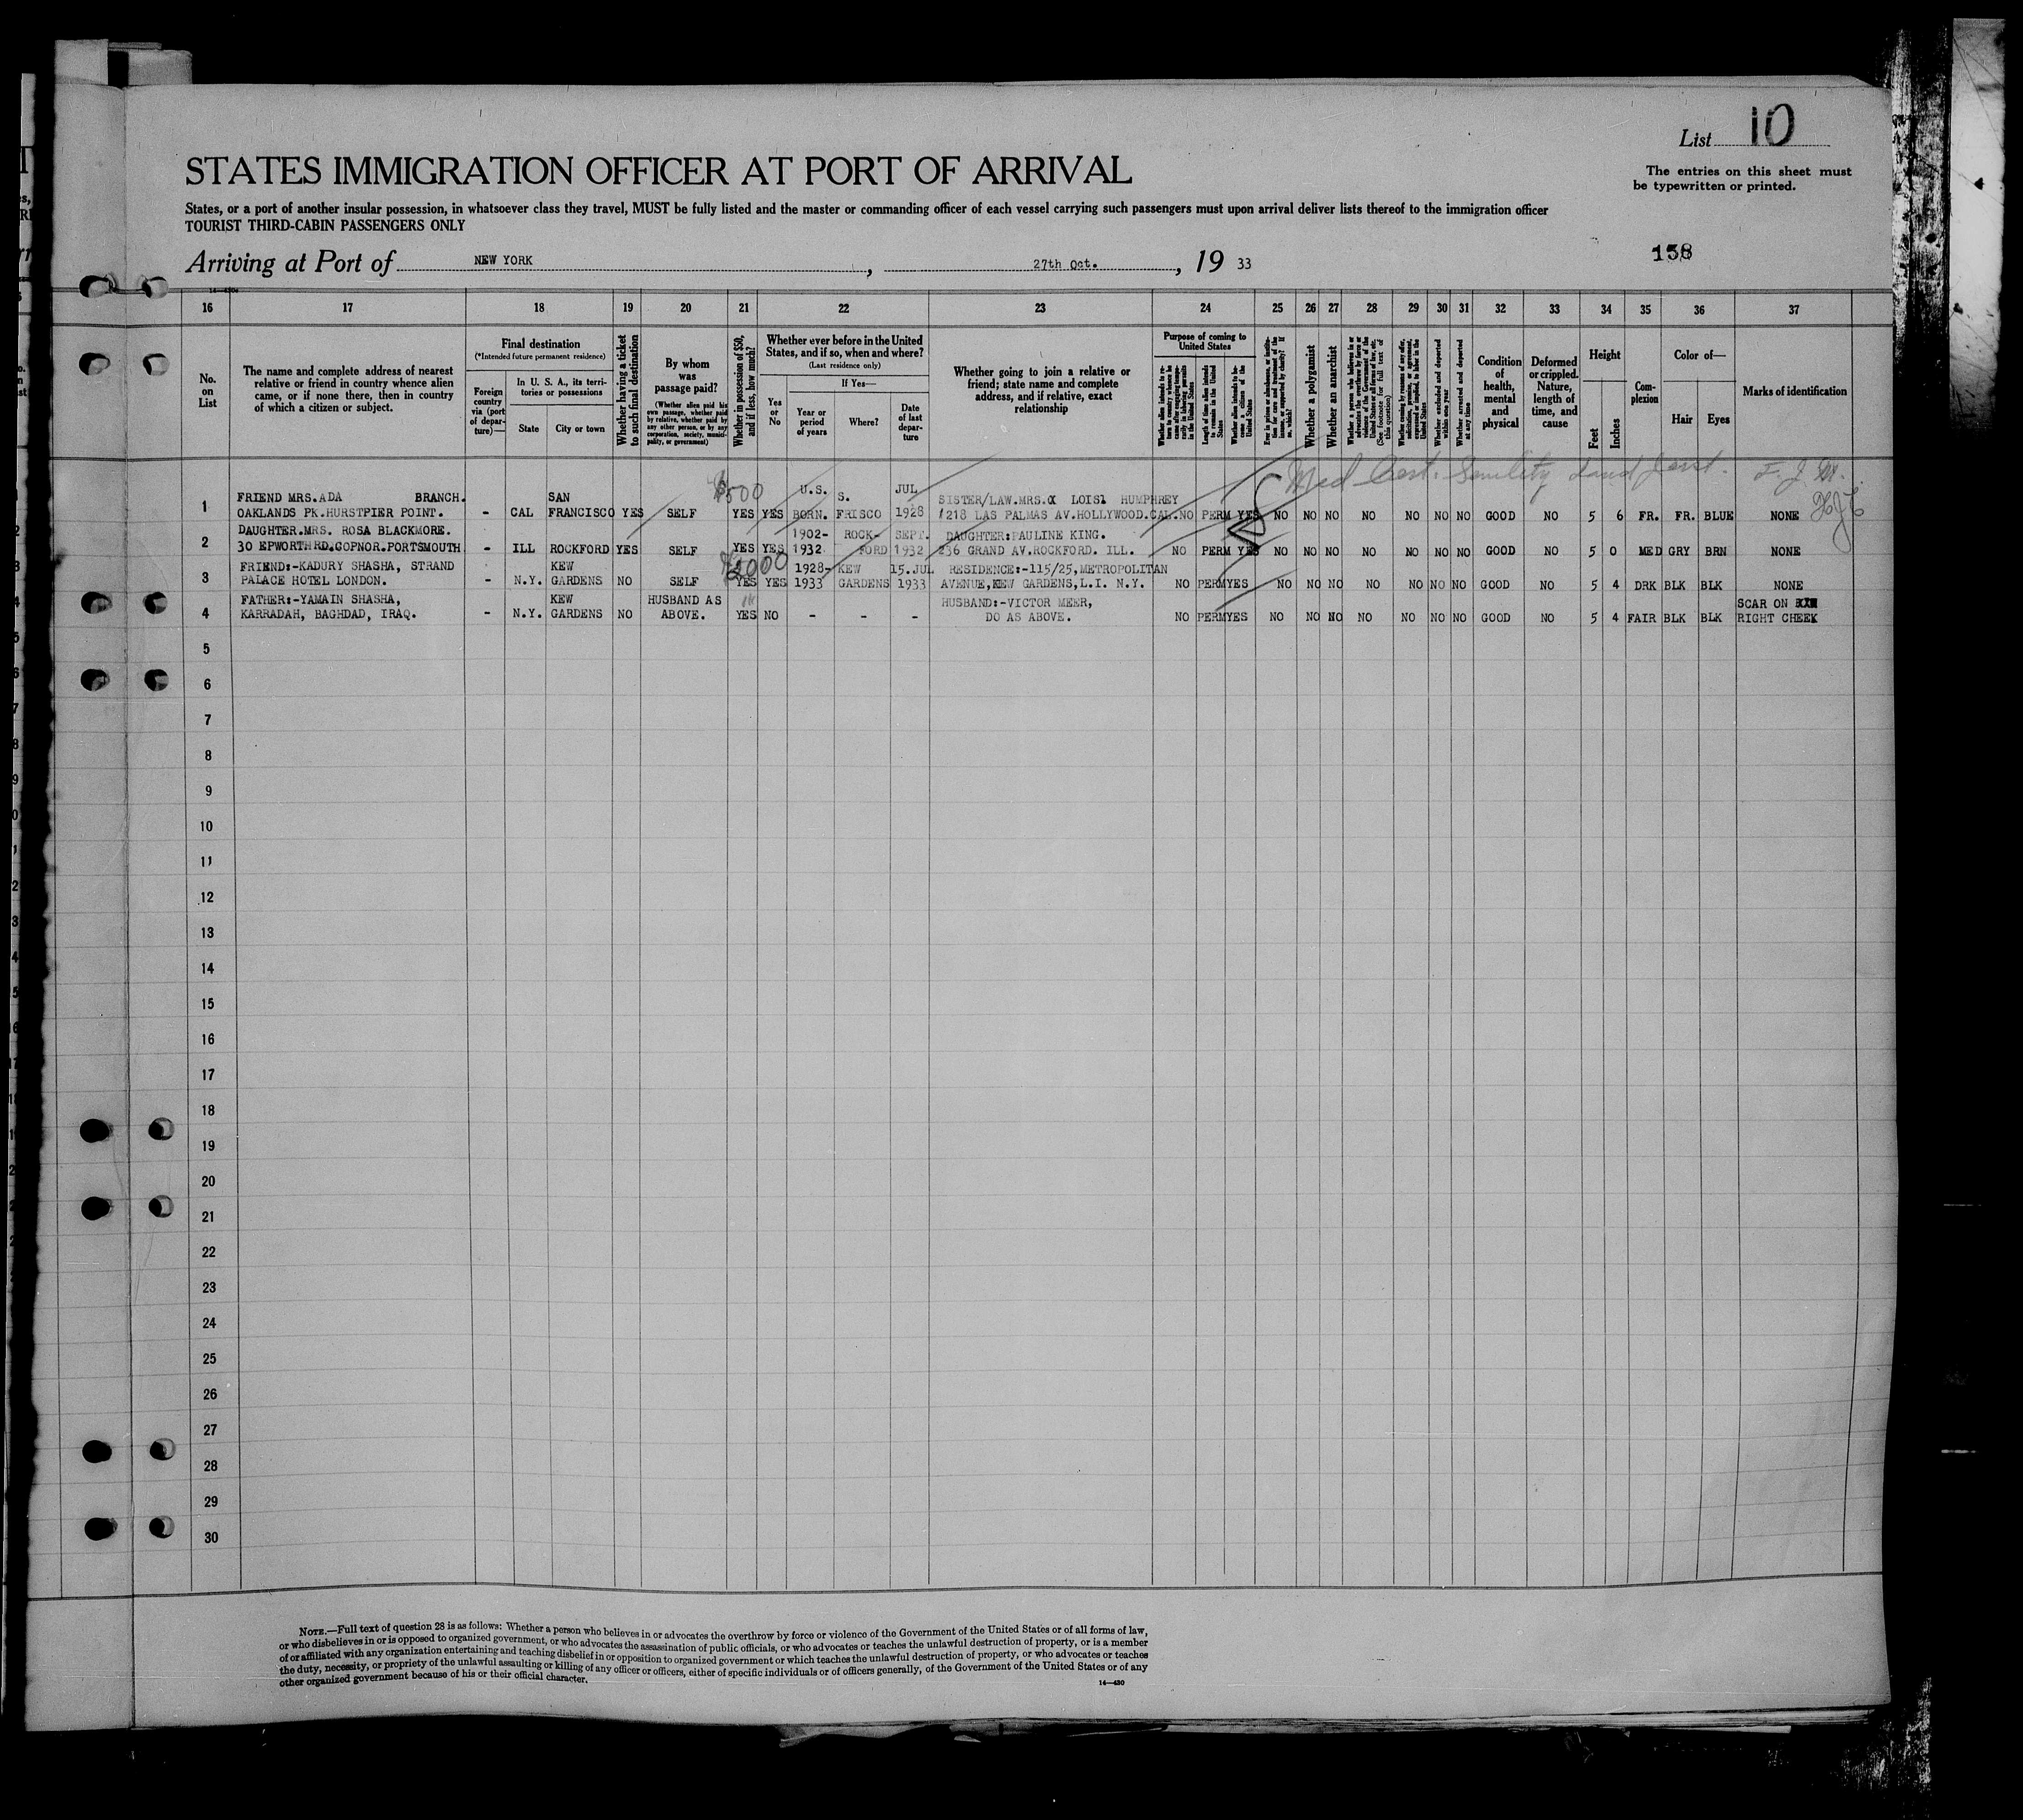 List 10
STATES IMMIGRATION OFFICER AT PORT OF ARRIVAL
The entries on this sheet must
be typewritten or printed.
States, or a port of another insular possession, in whatsoever class they travel, MUST be fully listed and the master or commanding officer of each vessel carrying such passengers must upon arrival deliver lists thereof to the immigration officer
TOURIST THIRD-CABIN PASSENGERS ONLY
Arriving at Port of NEW YORK, 27th Oct., 19 33
158
16 17 18 19 20 21 22 23 24 25 26 27 28 29 30 31 32 33 34 35 36 37
No. on List
The name and complete address of nearest
relative or friend in country whence alien
came, or if none there, then in country
of which a citizen or subject.
Final destination
(*Intended future permanent residence)
Foreign country via (port of departure)—
In U. S. A., its territories or possessions
State
City or town
Whether having a ticket to such final destination
By whom was passage paid?
(Whether alien paid his own passage, whether paid by relative, whether paid by any other person, or by any corporation, society, municipality, or government)
Whether in possession of $50, and if less, how much?
Whether ever before in the United States, and if so, when and where?
(Last residence only)
Yes or No
If Yes—
Year or period of years
Where?
Date of last departure
Whether going to join a relative or
friend; state name and complete
address, and if relative, exact
relationship
Purpose of coming to United States
Length of time alien intends to remain in the United States
Whether a polygamist
Whether an anarchist
Whether excluded and deported within one year
Whether arrested and deported at any time
Condition of health, mental and physical
Deformed or crippled. Nature, length of time, and cause
Height
Feet
Inches
Complexion
Color of—
Hair
Eyes
Marks of identification
Med Cert. Senility
$500
1 FRIEND MRS.ADA BRANCH.
OAKLANDS PK.HURSTPIER POINT. - CAL SAN FRANCISCO YES SELF YES YES U.S. BORN. S. FRISCO JUL 1928 SISTER/LAW.MRS. LOIS HUMPHREY
1218 LAS PALMAS AV.HOLLYWOOD.CAL. NO PERM YES NO NO NO NO NO NO NO GOOD NO 5 6 FR. FR. BLUE NONE
2 DAUGHTER.MRS. ROSA BLACKMORE.
30 EPWORTH RD.COPNOR.PORTSMOUTH - ILL ROCKFORD YES SELF YES YES 1902-1932 ROCK-FORD SEPT. 1932 DAUGHTER:PAULINE KING.
236 GRAND AV.ROCKFORD. ILL. NO PERM YES NO NO NO NO NO NO NO GOOD NO 5 0 MED GRY BRN NONE
3 FRIEND:-KADURY SHASHA, STRAND
PALACE HOTEL LONDON. - N.Y. KEW GARDENS NO SELF YES YES 1928-1933 KEW GARDENS 15.JUL 1933 RESIDENCE:-115/25,METROPOLITAN
AVENUE,KEW GARDENS,L.I. N.Y. NO PERM YES NO NO NO NO NO NO NO GOOD NO 5 4 DRK BLK BLK NONE
4 FATHER:-YAMAIN SHASHA,
KARRADAH, BAGHDAD, IRAQ. - N.Y. KEW GARDENS NO HUSBAND AS ABOVE. YES NO - - - HUSBAND:-VICTOR MEER,
DO AS ABOVE. NO PERM YES NO NO NO NO NO NO NO GOOD NO 5 4 FAIR BLK BLK SCAR ON RIGHT CHEEK
5
6
7
8
9
10
11
12
13
14
15
16
17
18
19
20
21
22
23
24
25
26
27
28
29
30
NOTE.—Full text of question 28 is as follows: Whether a person who believes in or advocates the overthrow by force or violence of the Government of the United States or of all forms of law,
or who disbelieves in or is opposed to organized government, or who advocates the assassination of public officials, or who advocates or teaches the unlawful destruction of property, or is a member
of or affiliated with any organization entertaining and teaching disbelief in or opposition to organized government or which teaches the unlawful destruction of property, or who advocates or teaches
the duty, necessity, or propriety of the unlawful assaulting or killing of any officer or officers, either of specific individuals or of officers generally, of the Government of the United States or of any
other organized government because of his or their official character.
14—430